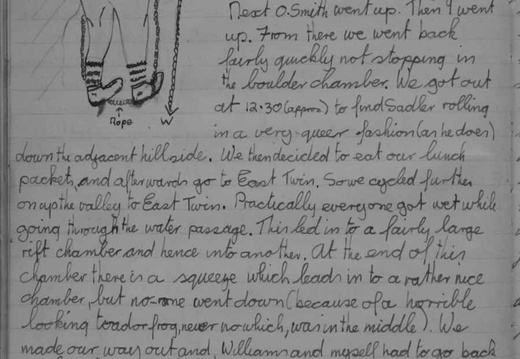 Next O.Smith went up. Then I went
up. From there we went back
fairly quickly not stopping in
the boulder chamber. We got out
at 12.30 (approx) to find Sadler rolling
in a very queer fashion (as he does)
Rope
W
down the adjacent hillside. We then decided to eat our lunch
packets, and afterwards go to East Twin. So we cycled further
on up the valley to East Twin. Practically everyone got wet while
going through the water passage. This led in to a fairly large
rift chamber and hence into another. At the end of this
chamber there is a squeeze which leads in to a rather nice
chamber, but no-one went down (because of a horrible
looking toad or frog, never no which, was in the middle). We
made our way out and, Williams and myself had to go back